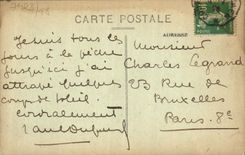 CARTE POSTALE
Je suis tous les
jours à la pêche
jusqu'ici j'ai
attrapé quelques
coups de soleil.
Cordialement
Monsieur
Charles Legrand
23 Rue de
Bruxelles
Paris. 8e